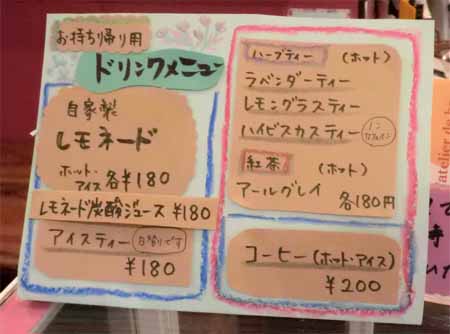 お持ち帰り用
ドリンクメニュー
自家製
レモネード
ホット・
アイス 各¥180
レモネード炭酸ジュース ¥180
アイスティー 日替りです
¥180
ハーブティー (ホット)
ラベンダーティー
レモングラスティー
ハイビスカスティー ノンカフェイン
紅茶 (ホット)
アールグレイ 各180円
コーヒー (ホット・アイス)
¥200
atelier de